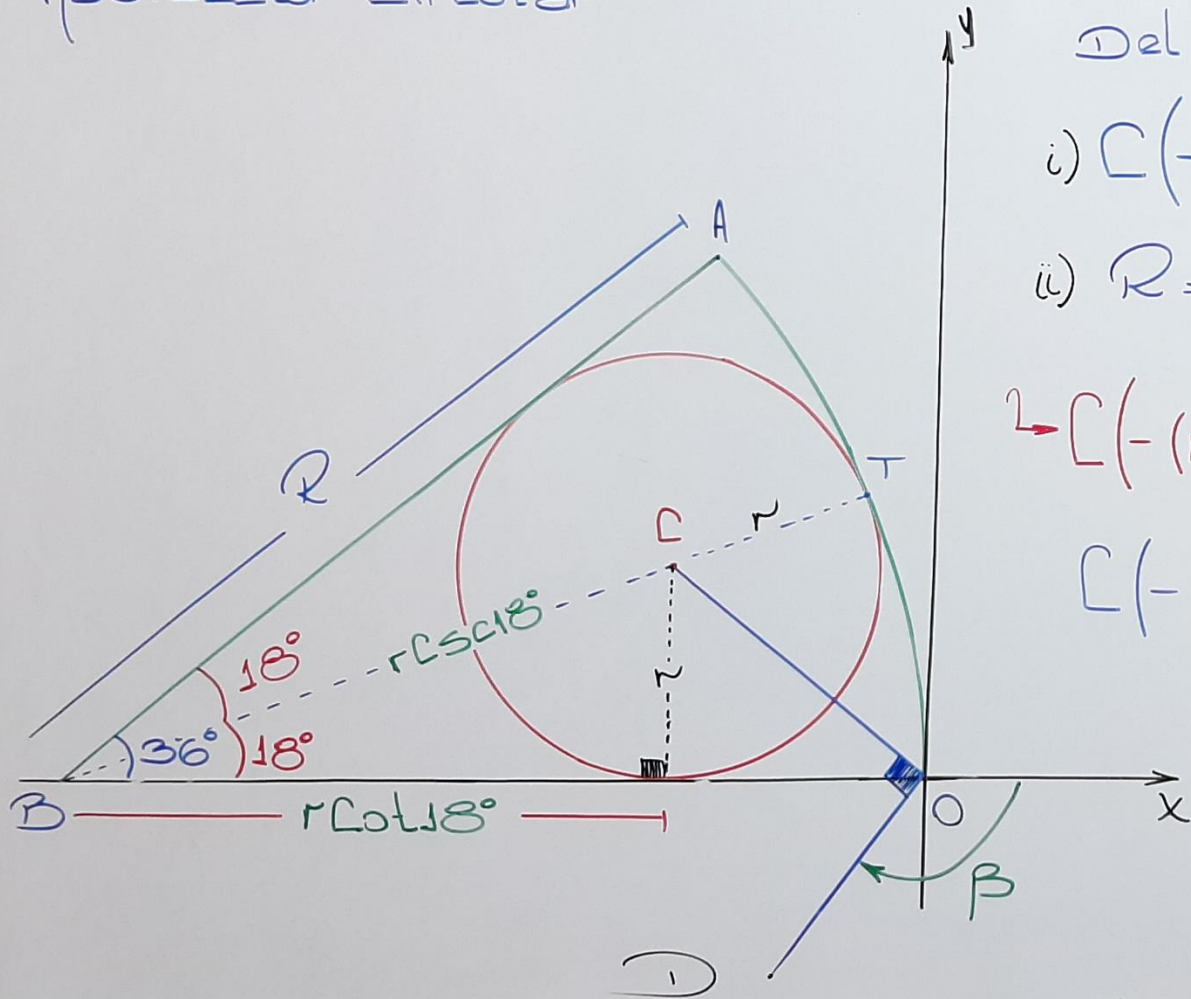 y
Del
i) C(-
A
ii) R =
R
C(-(
T
C
r
C(-
rCsc18°
18°
r
36°
18°
B
rCot18°
O
x
β
D